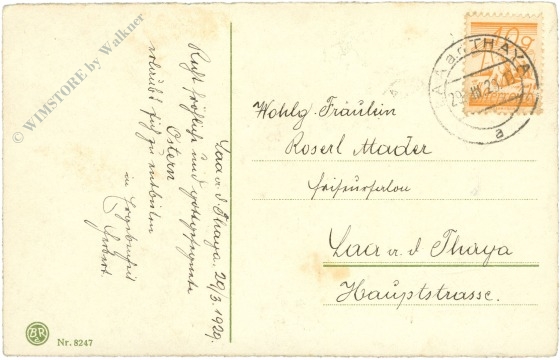 © WIMSTORE by Walkner
Laa a. d. Thaya. 29/3. 1929.
Recht fröhliche und gottgesegnete
Ostern
erlaubt sich zu entbieten
in Ergebenheit
Herbert
10 g
LAA a.d. THAYA
29. III. 29
a
Wohlg. Fräulein
Roserl Mader
Friseursalon
Laa a. d. Thaya
Hauptstrasse.
BR
Nr. 8247